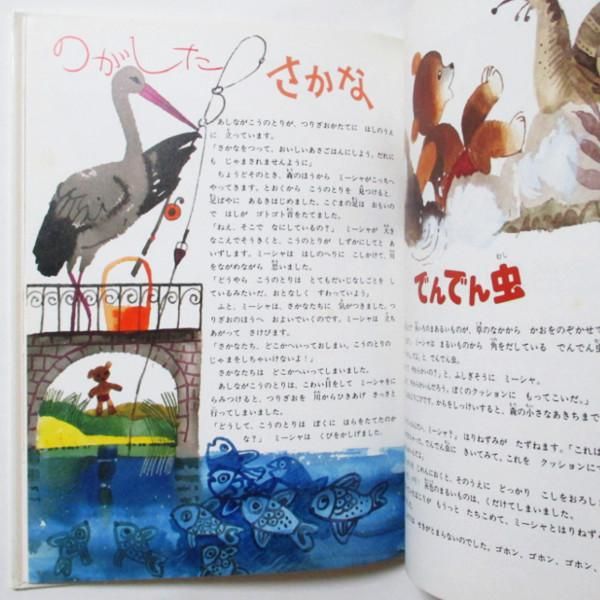 のがした
さかな
あしながこうのとりが、つりざおかたてに はしのうえ
に 立っています。
「さかなをつって、おいしいあさごはんにしよう。だれに
も じゃまされませんように」
ちょうどそのとき、森のほうから ミーシャがこっちへ
やってきます。とおくから こうのとりを 見つけると、
足ばやに あるきはじめました。こぐまの足は おもいの
で はしが ゴトゴト音をたてました。
「ねえ、そこで なにしているの？」 ミーシャが 大き
なこえでそうきくと、こうのとりが しずかにしてと あ
いずします。ミーシャは はしのへりに こしかけて、川
をながめながら 思いました。
「どうやら こうのとりは とてもだいじなしごとを し
ているみたいだ。おとなしく すわっていよう」
ふと、ミーシャは、さかなたちに 気がつきました。つ
りざおのほうへ およいでいくのです。ミーシャは 立ち
あがって さけびます。
「さかなたち、どこかへいっておしまい。こうのとりの
じゃまをしちゃいけないよ！」
さかなたちは どこかへいってしまいました。
あしながこうのとりは、こわい目をして ミーシャをに
らみつけると、つりざおを 川からひきあげ さっさと
行ってしまいました。
「どうして、こうのとりは ぼくに はらをたてたのか
な？」 ミーシャは くびをかしげました。
むし
でんでん虫
まるいものが、草のなかから かおをのぞかせて
ミーシャは まるいものから 角をだしている でんでん虫
と、でんでん虫。
ふしぎそうに ミーシャ。
ぼくのクッションに もってこいだ。」
森の小さなあきちまで
ミーシャ？」 はりねずみが たずねます。「これは
でんでん虫に きいてみて、これを クッションに
そのうえに どっかり こしをおろし
まるいものは、くだけてしまいました。
もうもうと たちこめて、ミーシャとはりねずみ
せきがとまらないのでした。ゴホン、ゴホン、ゴホン、